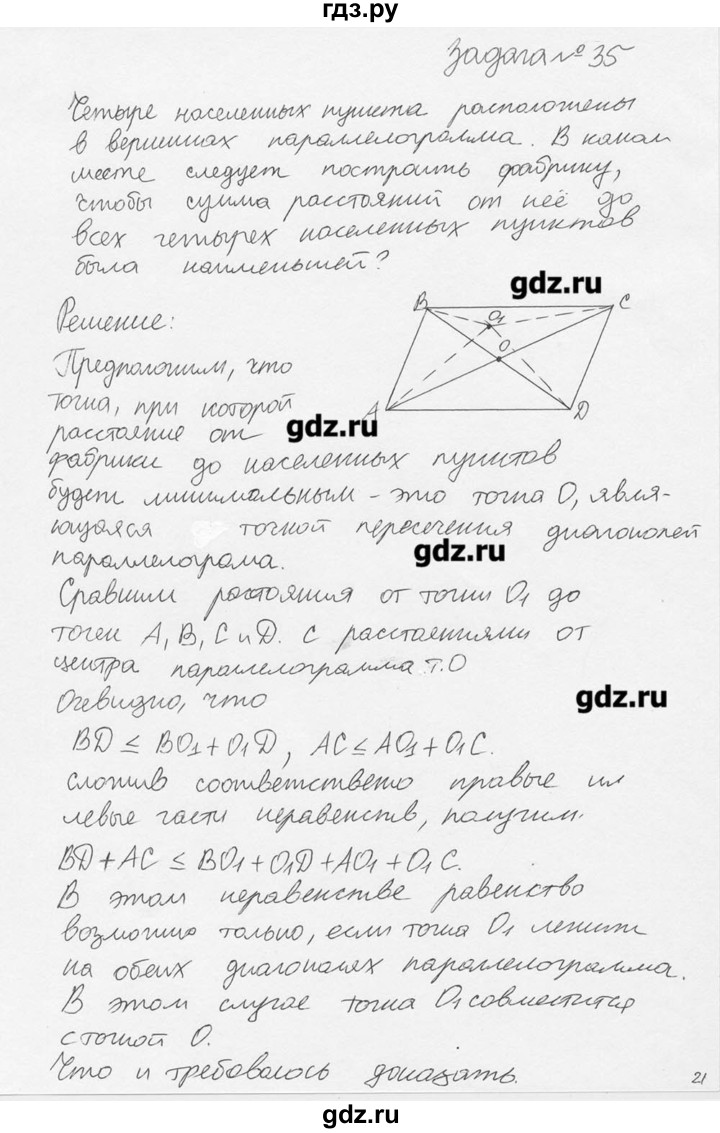 гдз.ру
Задача № 35
Четыре населенных пункта расположены
в вершинах параллелограмма. В каком
месте следует построить фабрику,
чтобы сумма расстояний от неё до
всех четырех населенных пунктов
была наименьшей?
gdz.ru
Решение:
B
C
O1
O
A
D
Предположим, что
точка, при которой
расстояние от
gdz.ru
фабрики до населенных пунктов
будет минимальным - это точка O, явля-
ющаяся точкой пересечения диагоналей
параллелограма.
gdz.ru
Сравним расстояния от точки O1 до
точек A, B, C и D. с расстояниями от
центра параллелограмма т.O
Очевидно, что
gdz.ru
BD ≤ BO1 + O1D, AC ≤ AO1 + O1C.
сложив соответствено правые ил
левые части неравенств, получим.
BD + AC ≤ BO1 + O1D + AO1 + O1C.
В этом неравенстве равенство
возможно только, если точка O1 лежит
на обеих диагоналях параллелограмма.
В этом случае точка O1 совместится
с точкой O.
Что и требовалось доказать.
21
gdz.ru